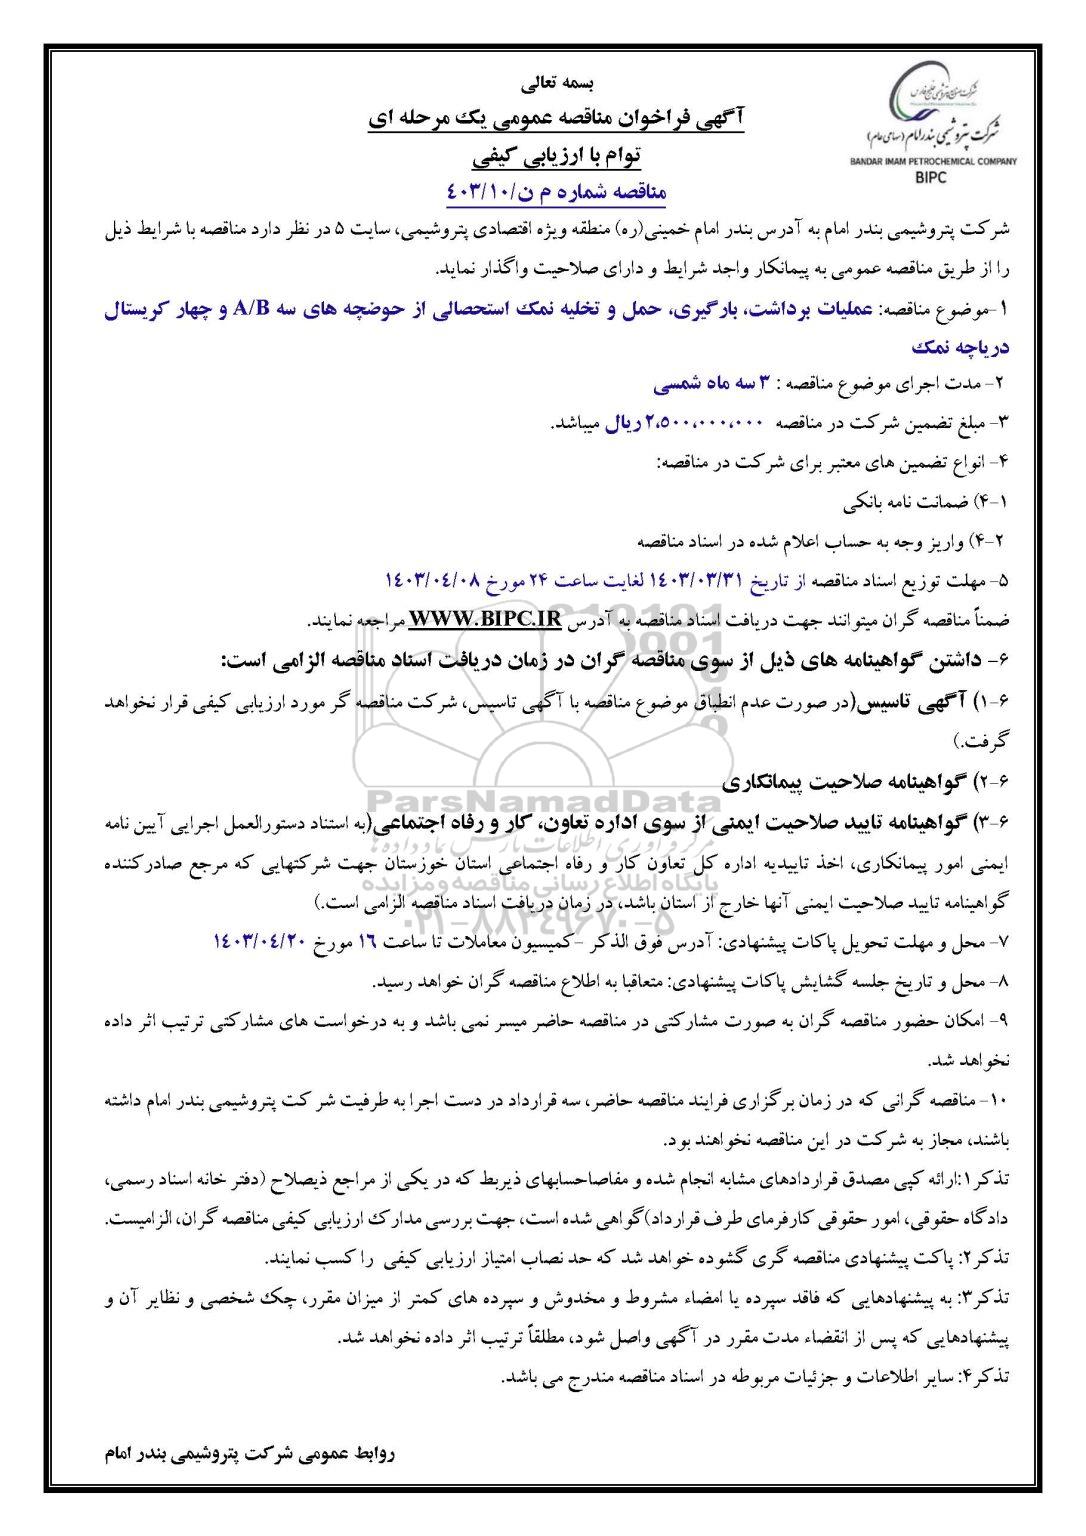 بسمه تعالی
آگهی فراخوان مناقصه عمومی یک مرحله ای
توام با ارزیابی کیفی
مناقصه شماره م ن/۴۰۳/۱۰
شرکت صنایع پتروشیمی خلیج فارس
شرکت پتروشیمی بندر امام (سهامی عام)
BANDAR IMAM PETROCHEMICAL COMPANY
BIPC
شرکت پتروشیمی بندر امام به آدرس بندر امام خمینی(ره) منطقه ویژه اقتصادی پتروشیمی، سایت ۵ در نظر دارد مناقصه با شرایط ذیل
را از طریق مناقصه عمومی به پیمانکار واجد شرایط و دارای صلاحیت واگذار نماید.
۱-موضوع مناقصه: عملیات برداشت، بارگیری، حمل و تخلیه نمک استحصالی از حوضچه های سه A/B و چهار کریستال
دریاچه نمک
۲- مدت اجرای موضوع مناقصه : ۳ سه ماه شمسی
۳- مبلغ تضمین شرکت در مناقصه ۲،۵۰۰،۰۰۰،۰۰۰ ریال میباشد.
۴- انواع تضمین های معتبر برای شرکت در مناقصه:
۴-۱) ضمانت نامه بانکی
۴-۲) واریز وجه به حساب اعلام شده در اسناد مناقصه
۵- مهلت توزیع اسناد مناقصه از تاریخ ۱۴۰۳/۰۳/۳۱ لغایت ساعت ۲۴ مورخ ۱۴۰۳/۰۴/۰۸
ضمناً مناقصه گران میتوانند جهت دریافت اسناد مناقصه به آدرس WWW.BIPC.IR مراجعه نمایند.
۶- داشتن گواهینامه های ذیل از سوی مناقصه گران در زمان دریافت اسناد مناقصه الزامی است:
۶-۱) آگهی تاسیس(در صورت عدم انطباق موضوع مناقصه با آگهی تاسیس، شرکت مناقصه گر مورد ارزیابی کیفی قرار نخواهد
گرفت.)
۶-۲) گواهینامه صلاحیت پیمانکاری
ParsNamadData
۶-۳) گواهینامه تایید صلاحیت ایمنی از سوی اداره تعاون، کار و رفاه اجتماعی(به استناد دستورالعمل اجرایی آیین نامه
ایمنی امور پیمانکاری، اخذ تاییدیه اداره کل تعاون کار و رفاه اجتماعی استان خوزستان جهت شرکتهایی که مرجع صادرکننده
پایگاه اطلاع رسانی مناقصه و مزایده
گواهینامه تایید صلاحیت ایمنی آنها خارج از استان باشد، در زمان دریافت اسناد مناقصه الزامی است.)
۰۲۱-۸۸۳۴۹۶۷۰-۵
۷- محل و مهلت تحویل پاکات پیشنهادی: آدرس فوق الذکر -کمیسیون معاملات تا ساعت ۱۶ مورخ ۱۴۰۳/۰۴/۲۰
۸- محل و تاریخ جلسه گشایش پاکات پیشنهادی: متعاقبا به اطلاع مناقصه گران خواهد رسید.
۹- امکان حضور مناقصه گران به صورت مشارکتی در مناقصه حاضر میسر نمی باشد و به درخواست های مشارکتی ترتیب اثر داده
نخواهد شد.
۱۰- مناقصه گرانی که در زمان برگزاری فرایند مناقصه حاضر، سه قرارداد در دست اجرا به طرفیت شرکت پتروشیمی بندر امام داشته
باشند، مجاز به شرکت در این مناقصه نخواهند بود.
تذکر۱:ارائه کپی مصدق قراردادهای مشابه انجام شده و مفاصاحسابهای ذیربط که در یکی از مراجع ذیصلاح (دفتر خانه اسناد رسمی،
دادگاه حقوقی، امور حقوقی کارفرمای طرف قرارداد)گواهی شده است، جهت بررسی مدارک ارزیابی کیفی مناقصه گران، الزامیست.
تذکر۲: پاکت پیشنهادی مناقصه گری گشوده خواهد شد که حد نصاب امتیاز ارزیابی کیفی را کسب نمایند.
تذکر۳: به پیشنهادهایی که فاقد سپرده یا امضاء مشروط و مخدوش و سپرده های کمتر از میزان مقرر، چک شخصی و نظایر آن و
پیشنهادهایی که پس از انقضاء مدت مقرر در آگهی واصل شود، مطلقاً ترتیب اثر داده نخواهد شد.
تذکر۴: سایر اطلاعات و جزئیات مربوطه در اسناد مناقصه مندرج می باشد.
روابط عمومی شرکت پتروشیمی بندر امام